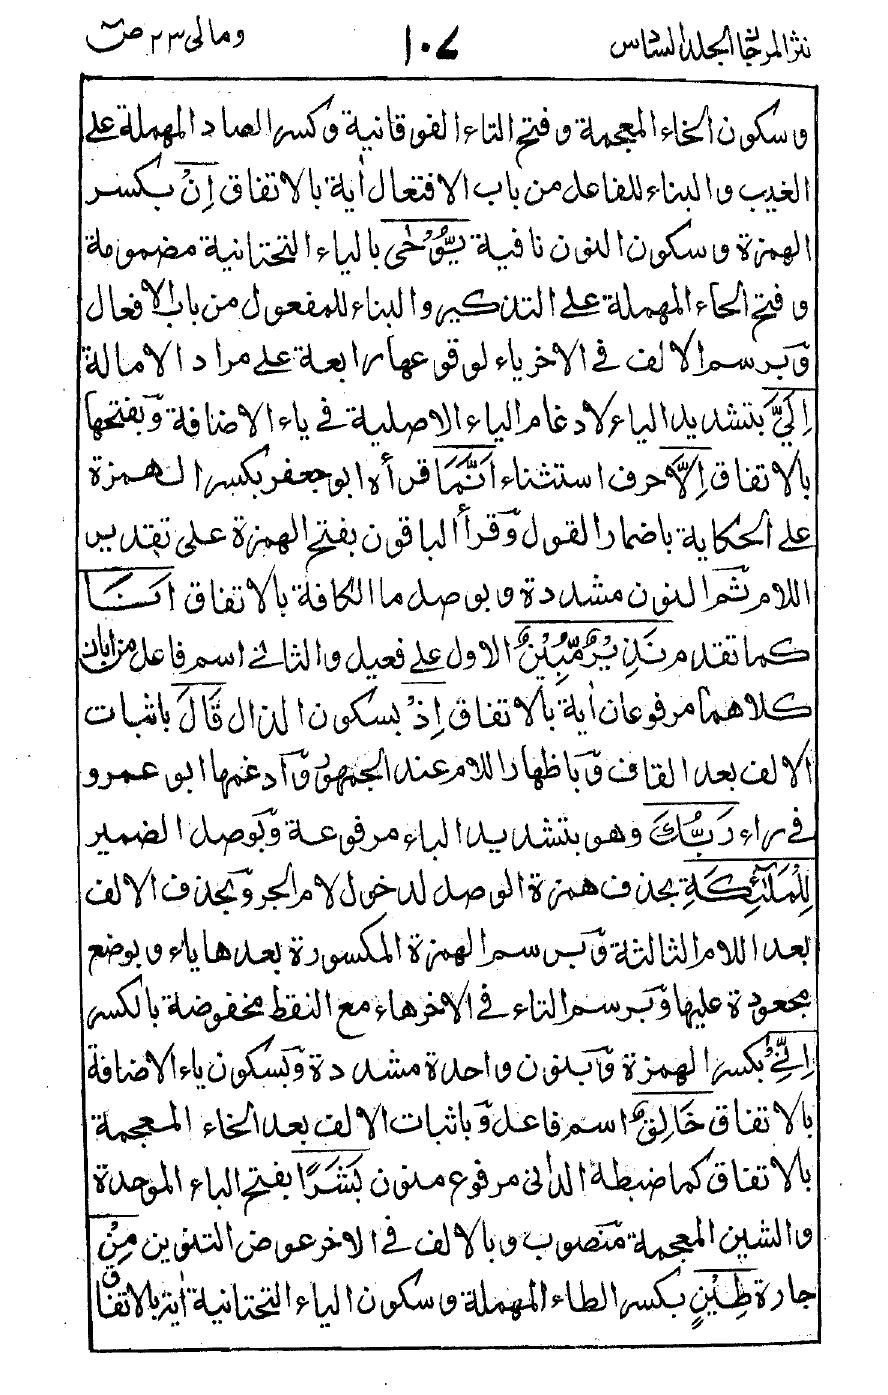 نثر المرجان الجلد السادس ١٠٧ ومالى ٢٣ ص
وسكون الخاء المعجمة وفتح التاء الفوقانية وكسر الصاد المهملة على
الغيب والبناء للفاعل من باب الافتعال اٰية بالاتفاق اِنْ بكسر
الهمزة وسكون النون نافية يُّوْحٰى بالياء التحتانية مضمومة
وفتح الحاء المهملة على التذكير والبناء للمفعول من باب الافعال
وَبرسم الالف فى الاخر ياء لوقوعها رابعة على مراد الامالة
اِلَىَّ بتشديد الياء لادغام الياء الاصلية فى ياء الاضافة وَبفتحها
بالاتفاق اِلَّا حرف استثناء اَنَّمَا قرأه ابو جعفر بكسر الهمزة
على الحكاية باضمار القول وَقرأ الباقون بفتح الهمزة على تقدير
اللام ثم النون مشددة وبوصل ما الكافة بالاتفاق اَنَا
كما تقدم نَذِيْرٌ مُّبِيْنٌ الاول على فعيل والثانى اسم فاعل من ابان
كلاهما مرفوعان اٰية بالاتفاق اِذْ بسكون الذال قَالَ باثبات
الالف بعد القاف وَباظهار اللام عند الجمهور وَادغمها ابو عمرو
فى راء رَبُّكَ وهو بتشديد الباء مرفوعة وَبوصل الضمير
لِلْمَلٰٓئِكَةِ بحذف همزة الوصل لدخول لام الجر وَبحذف الالف
بعد اللام الثالثة وَبرسم الهمزة المكسورة بعدها ياء وبوضع
مجعودة عليها وَبرسم التاء فى الاخر هاء مع النقط مخفوضة بالكسر
اِنِّىْ بكسر الهمزة وَبنون واحدة مشددة وَبسكون ياء الاضافة
بالاتفاق خَالِقٌ اسم فاعل وَباثبات الالف بعد الخاء المعجمة
بالاتفاق كما ضبطة الدانى مرفوع منون بَشَرًا بفتح الباء الموحدة
والشين المعجمة منصوب وبالالف فى الاخر عوض التنوين مِنْ
جارة طِيْنٍ بكسر الطاء المهملة وسكون الياء التحتانية اٰية بالاتفاق